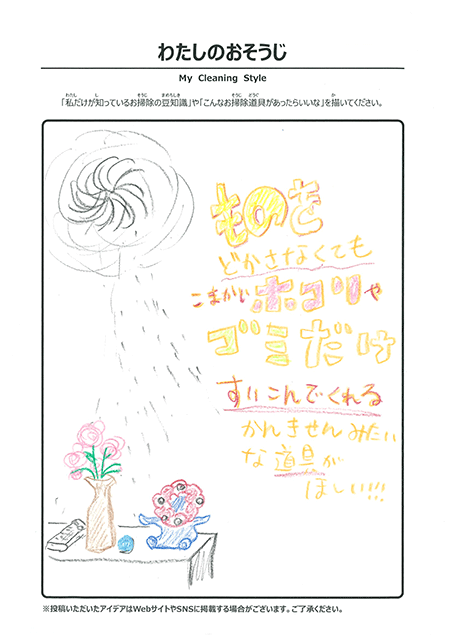 わたしのおそうじ
My Cleaning Style
「私だけが知っているお掃除の豆知識」や「こんなお掃除道具があったらいいな」を描いてください。
ものを
どかさなくても
こまかいホコリや
ゴミだけ
すいこんでくれる
かんきせんみたい
な道具が
ほしい!!!
※投稿いただいたアイデアはWebサイトやSNSに掲載する場合がございます。ご了承ください。